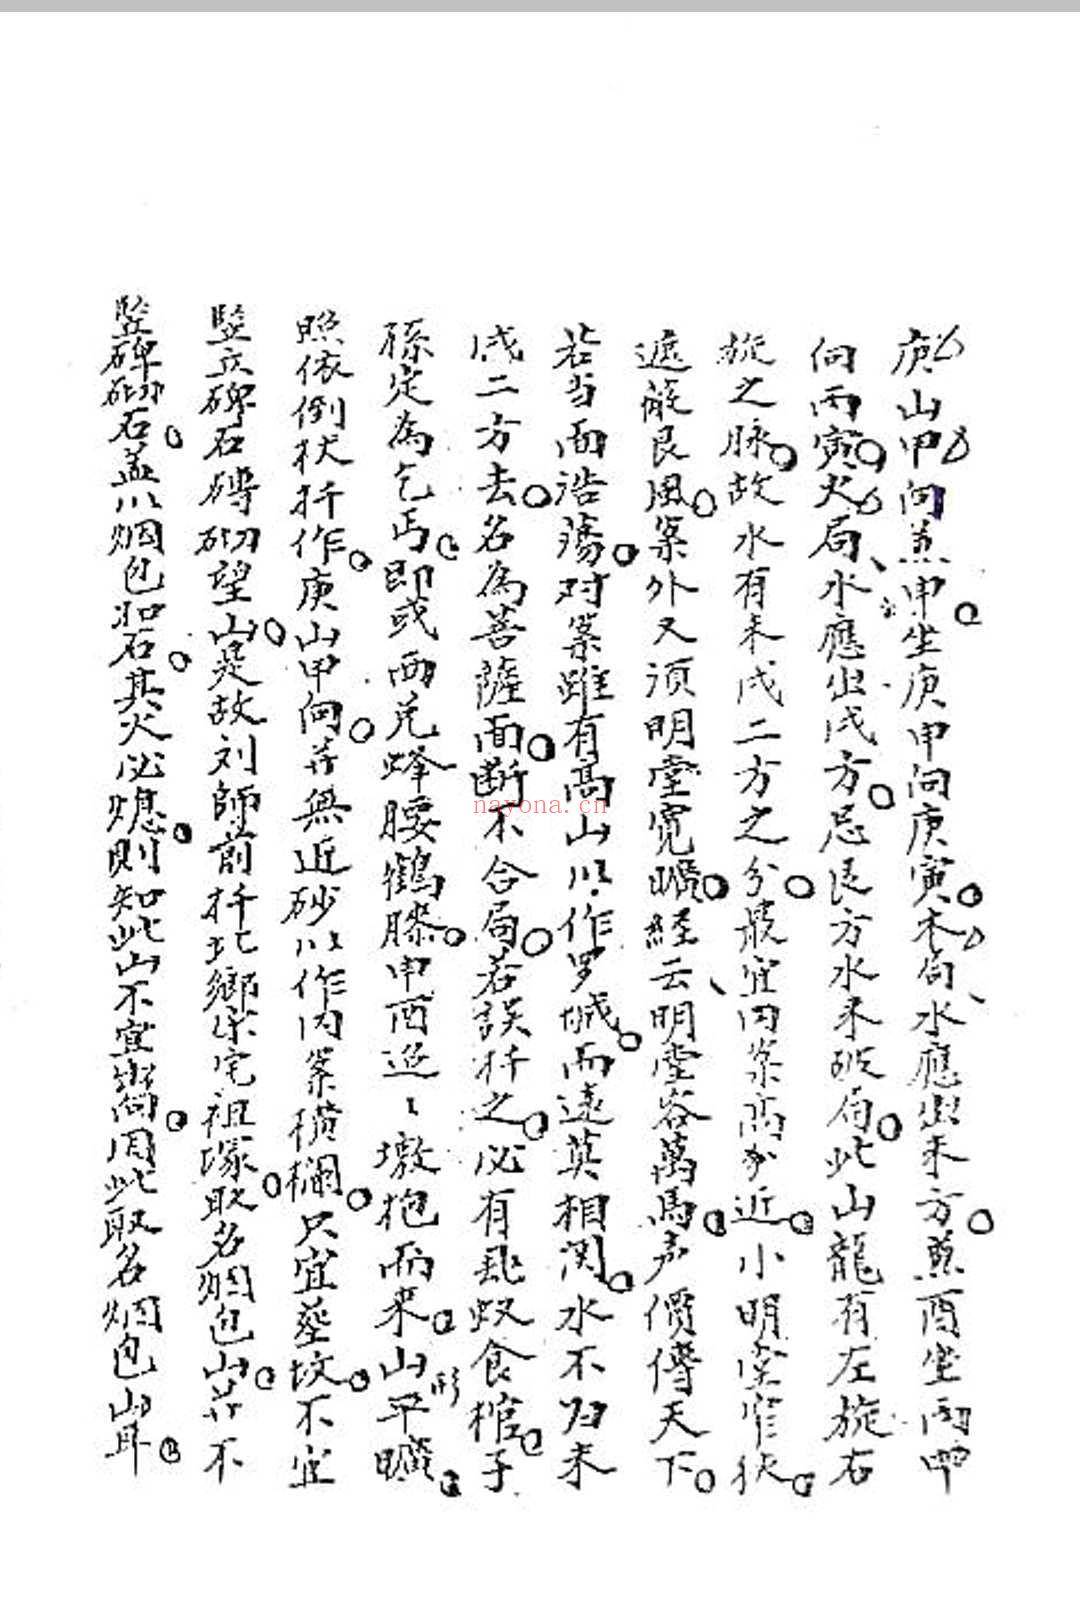 庚山甲向兼申坐庚申向庚寅木局水應出未方兼酉坐丙申
向丙寅火局水應出戌方忌艮方水来破局此山龍有左旋右
旋之脉故水有未戌二方之分最宜内案高分近小明堂窄狭
遮蔽艮風案外又須明堂寬曠経云明堂容萬馬声價傳天下
若当面浩蕩对案雖有高山以作罗城而遠莫相関水不归未
戌二方去名為菩薩面断不合局若誤扦之必有虱蚁食棺子
孫定為乞丐即或西兌蜂腰鶴膝申酉迢々墩抱而来山形平曠
照依倒杖扦作庚山甲向并無近砂以作内案横欄只宜塟坟不宜
竪立碑石磚砌望山是故刘師前扦北鄉宋宅祖塚取名烟包山并不
竪碑砌石盖以烟包加石其火必熄則知此山不宜嵩用此取名烟包山耳
nayona.cn